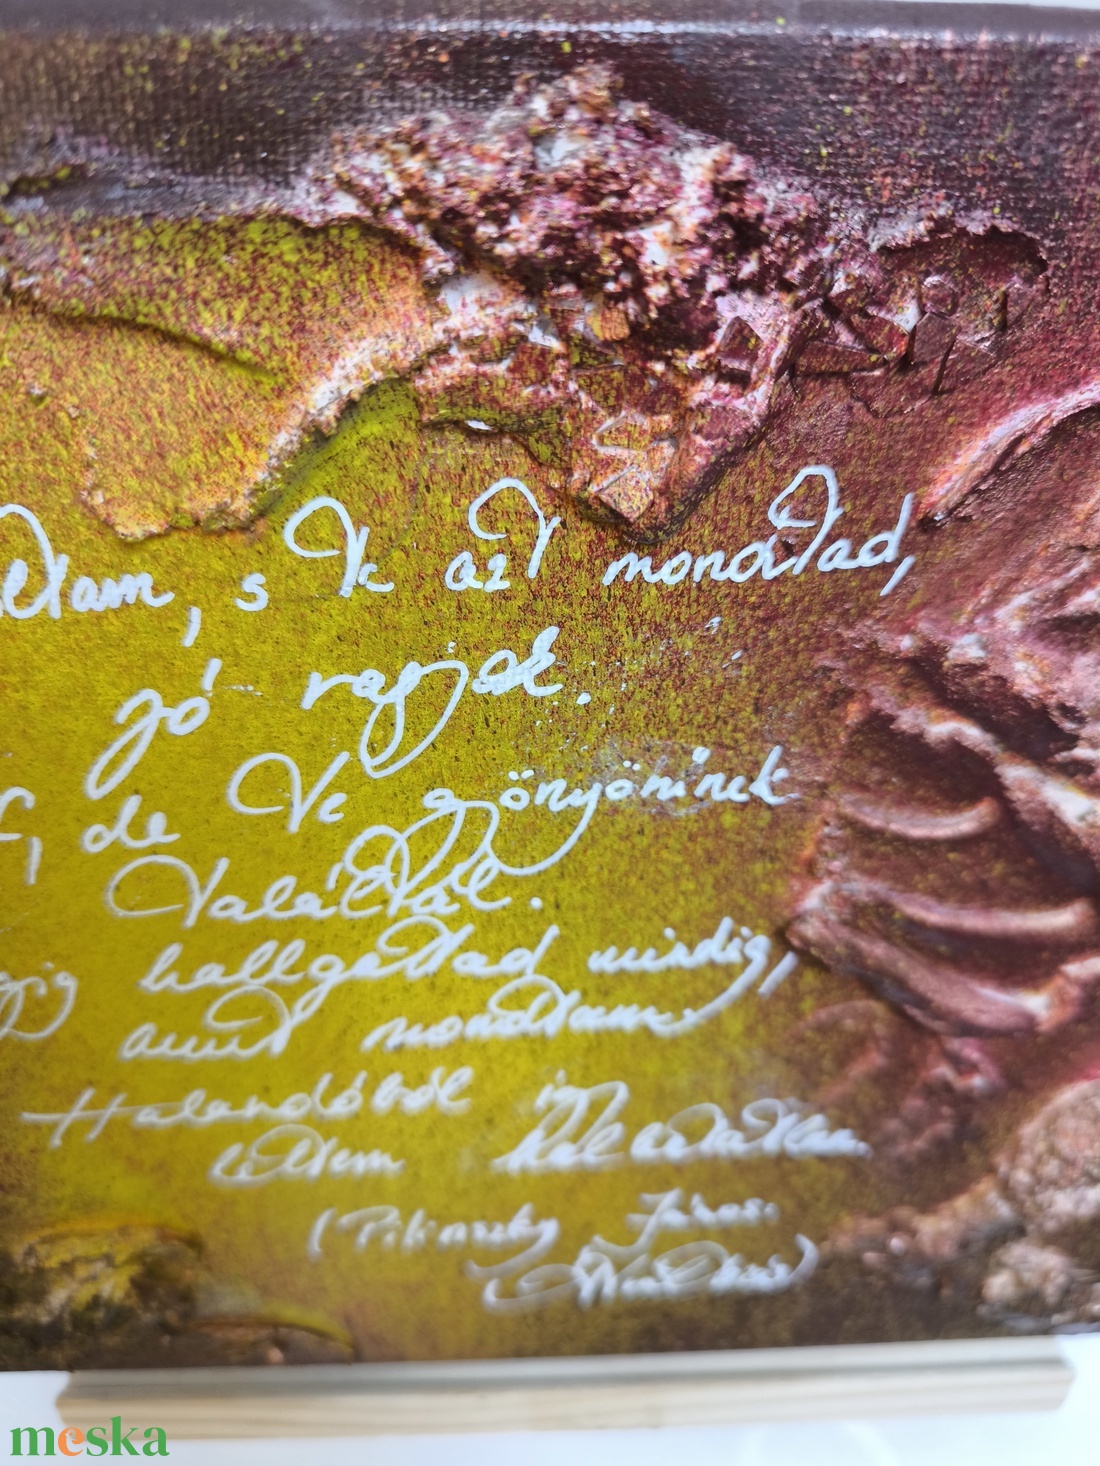 ltam, s Te azt mondtad,
jó vagyok.
, de Te gyönyörűnek
találtál.
végig hallgattad mindig,
amit mondtam.
Halandóból így
lettem halhatatlan.
(Pilinszky János:
Átváltozás)
meska